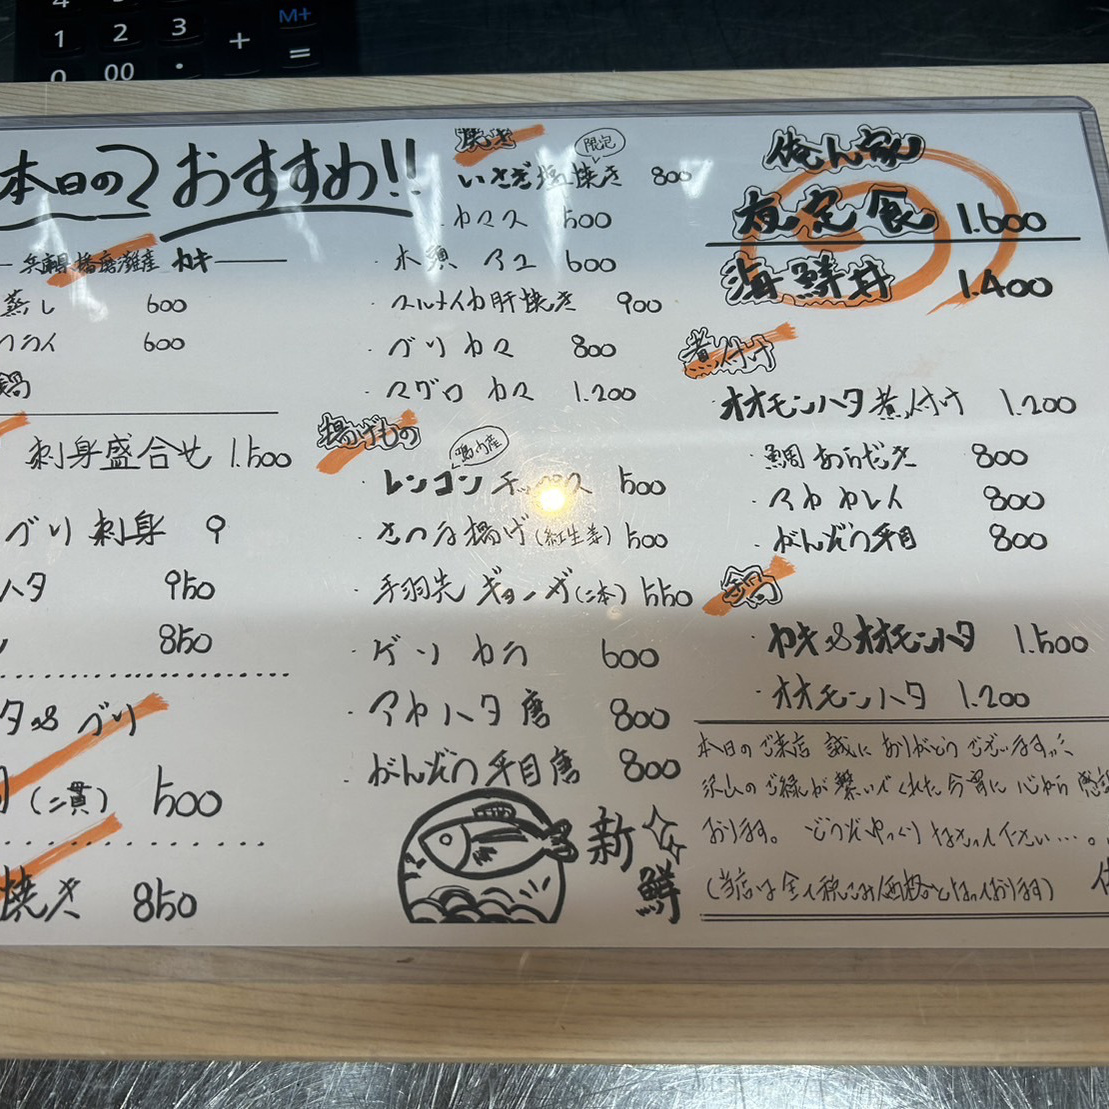 M+
1 2 3 + =
0 00 ·
本日の おすすめ!!
兵庫県播磨灘産 カキ
蒸し 600
フライ 600
鍋
刺身盛合せ 1.500
ブリ 刺身 9
ハタ 950
850
タ&ブリ
(二貫) 500
焼き 850
焼き
限定
いさぎ塩焼き 800
カマス 500
木頭 アユ 600
スルメイカ肝焼き 900
ブリ カマ 800
マグロ カマ 1.200
揚げもの
レンコン チップス 500
さつま揚げ(紅生姜) 500
手羽先 ギョーザ(二本) 550
ゲソ カラ 600
アカハタ 唐 800
がんぞう平目唐 800
新鮮
俺ん家
夜定食 1.600
海鮮丼 1.400
煮付け
オオモンハタ煮付け 1.200
鯛あらだき 800
アカガレイ 800
がんぞう平目 800
鍋
カキ&オオモンハタ 1.500
オオモンハタ 1.200
本日のご来店 誠に ありがとう ございます
沢山のご縁が繋いでくれた今宵に 心から 感謝
おります。 どうぞゆっくり なさって下さい…。
(当店は全て税込み価格となっております)